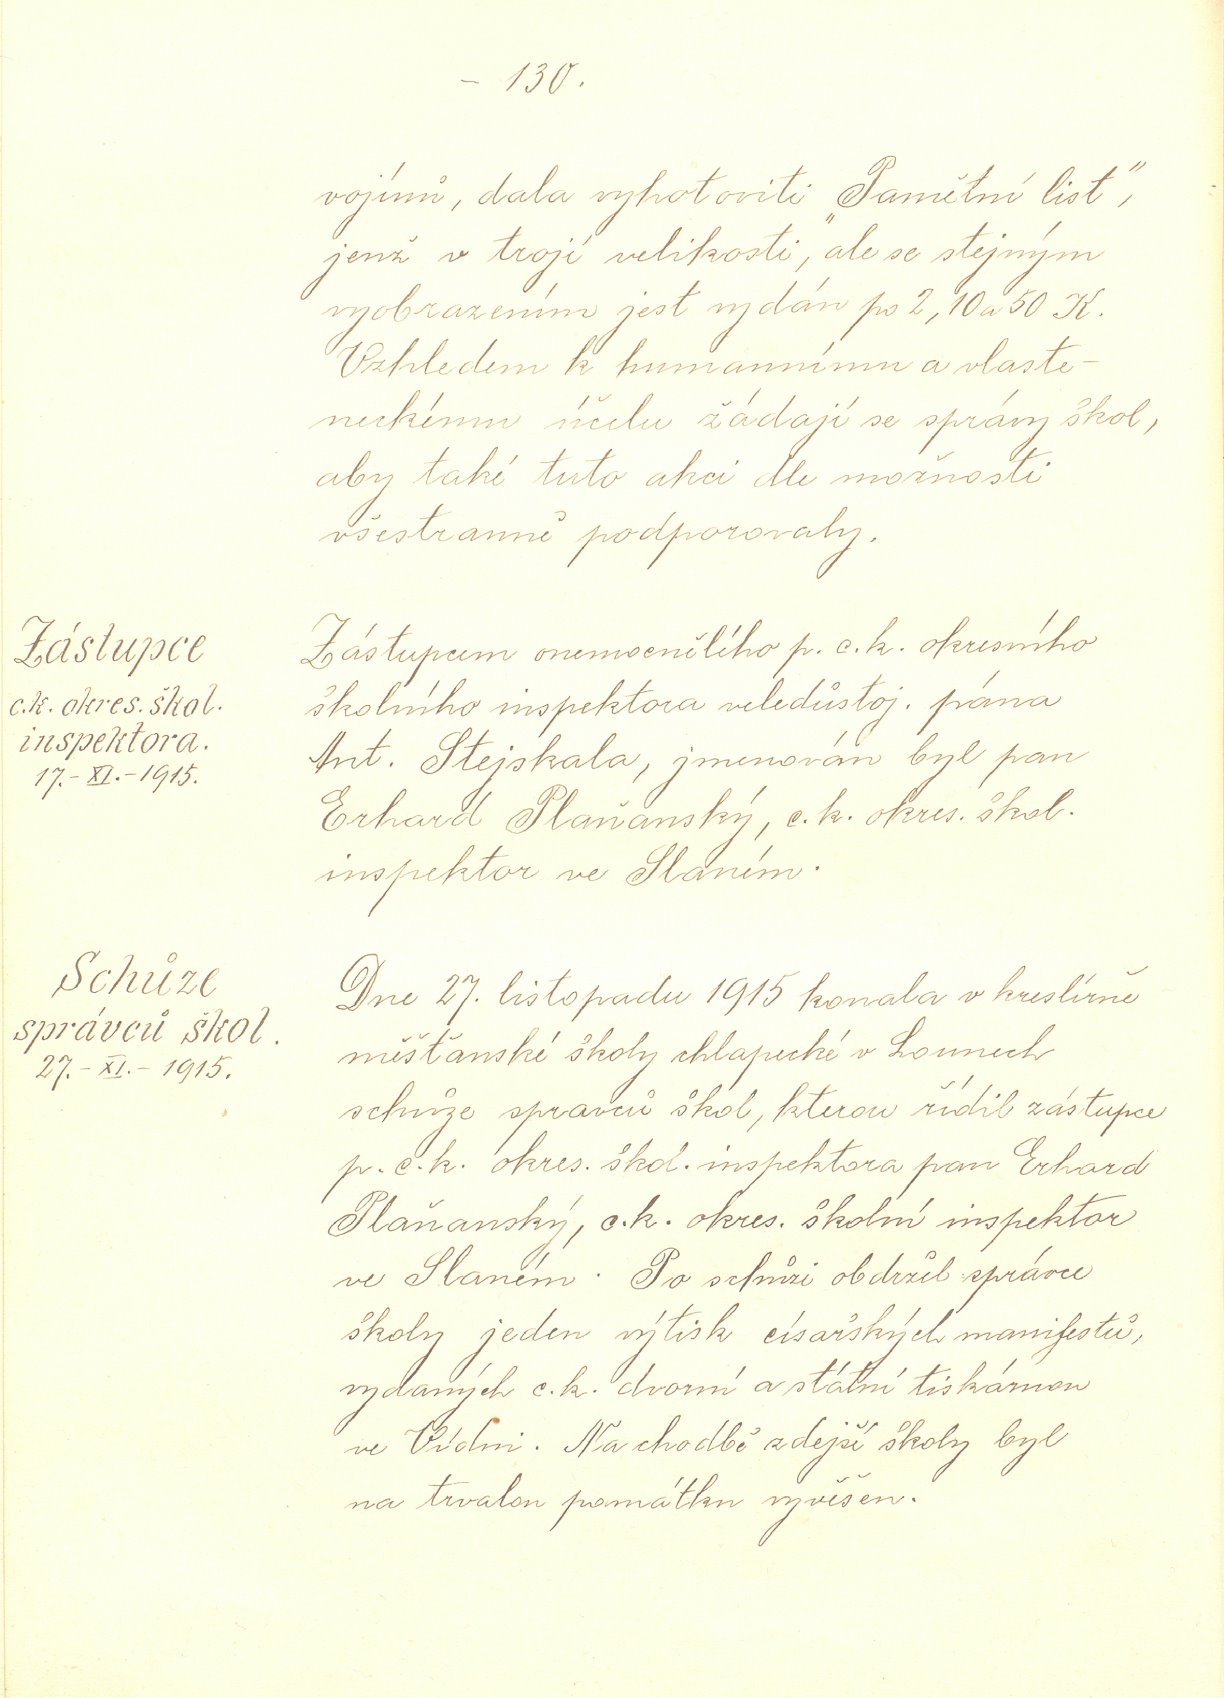 - 130.
vojínů, dala vyhotoviti „Pamětní list",
jenž v trojí velikosti, ale se stejným
vyobrazením jest vydán po 2, 10 a 50 K.
Vzhledem k humannímu a vlaste-
neckému účelu žádají se správy škol,
aby také tuto akci dle možnosti
všestranně podporovaly.
Zástupce
c.k. okres. škol.
inspektora.
17.- XI. - 1915.
Zástupcem onemocnělého p. c. k. okresního
školního inspektora veledůstoj. pána
Ant. Stejskala, jmenován byl pan
Erhard Plaňanský, c. k. okres. škol.
inspektor ve Slaném.
Schůze
správců škol.
27. - XI. - 1915.
Dne 27. listopadu 1915 konala v kreslírně
měšťanské školy chlapecké v Lounech
schůze spravců škol, kterou řídil zástupce
p. c. k. okres. škol. inspektora pan Erhard
Plaňanský, c. k. okres. školní inspektor
ve Slaném. Po schůzi obdržel správce
školy jeden výtisk císařských manifestů,
vydaných c. k. dvorní a státní tiskárnou
ve Vídni. Na chodbě zdejší školy byl
na trvalou památku vyvěšen.